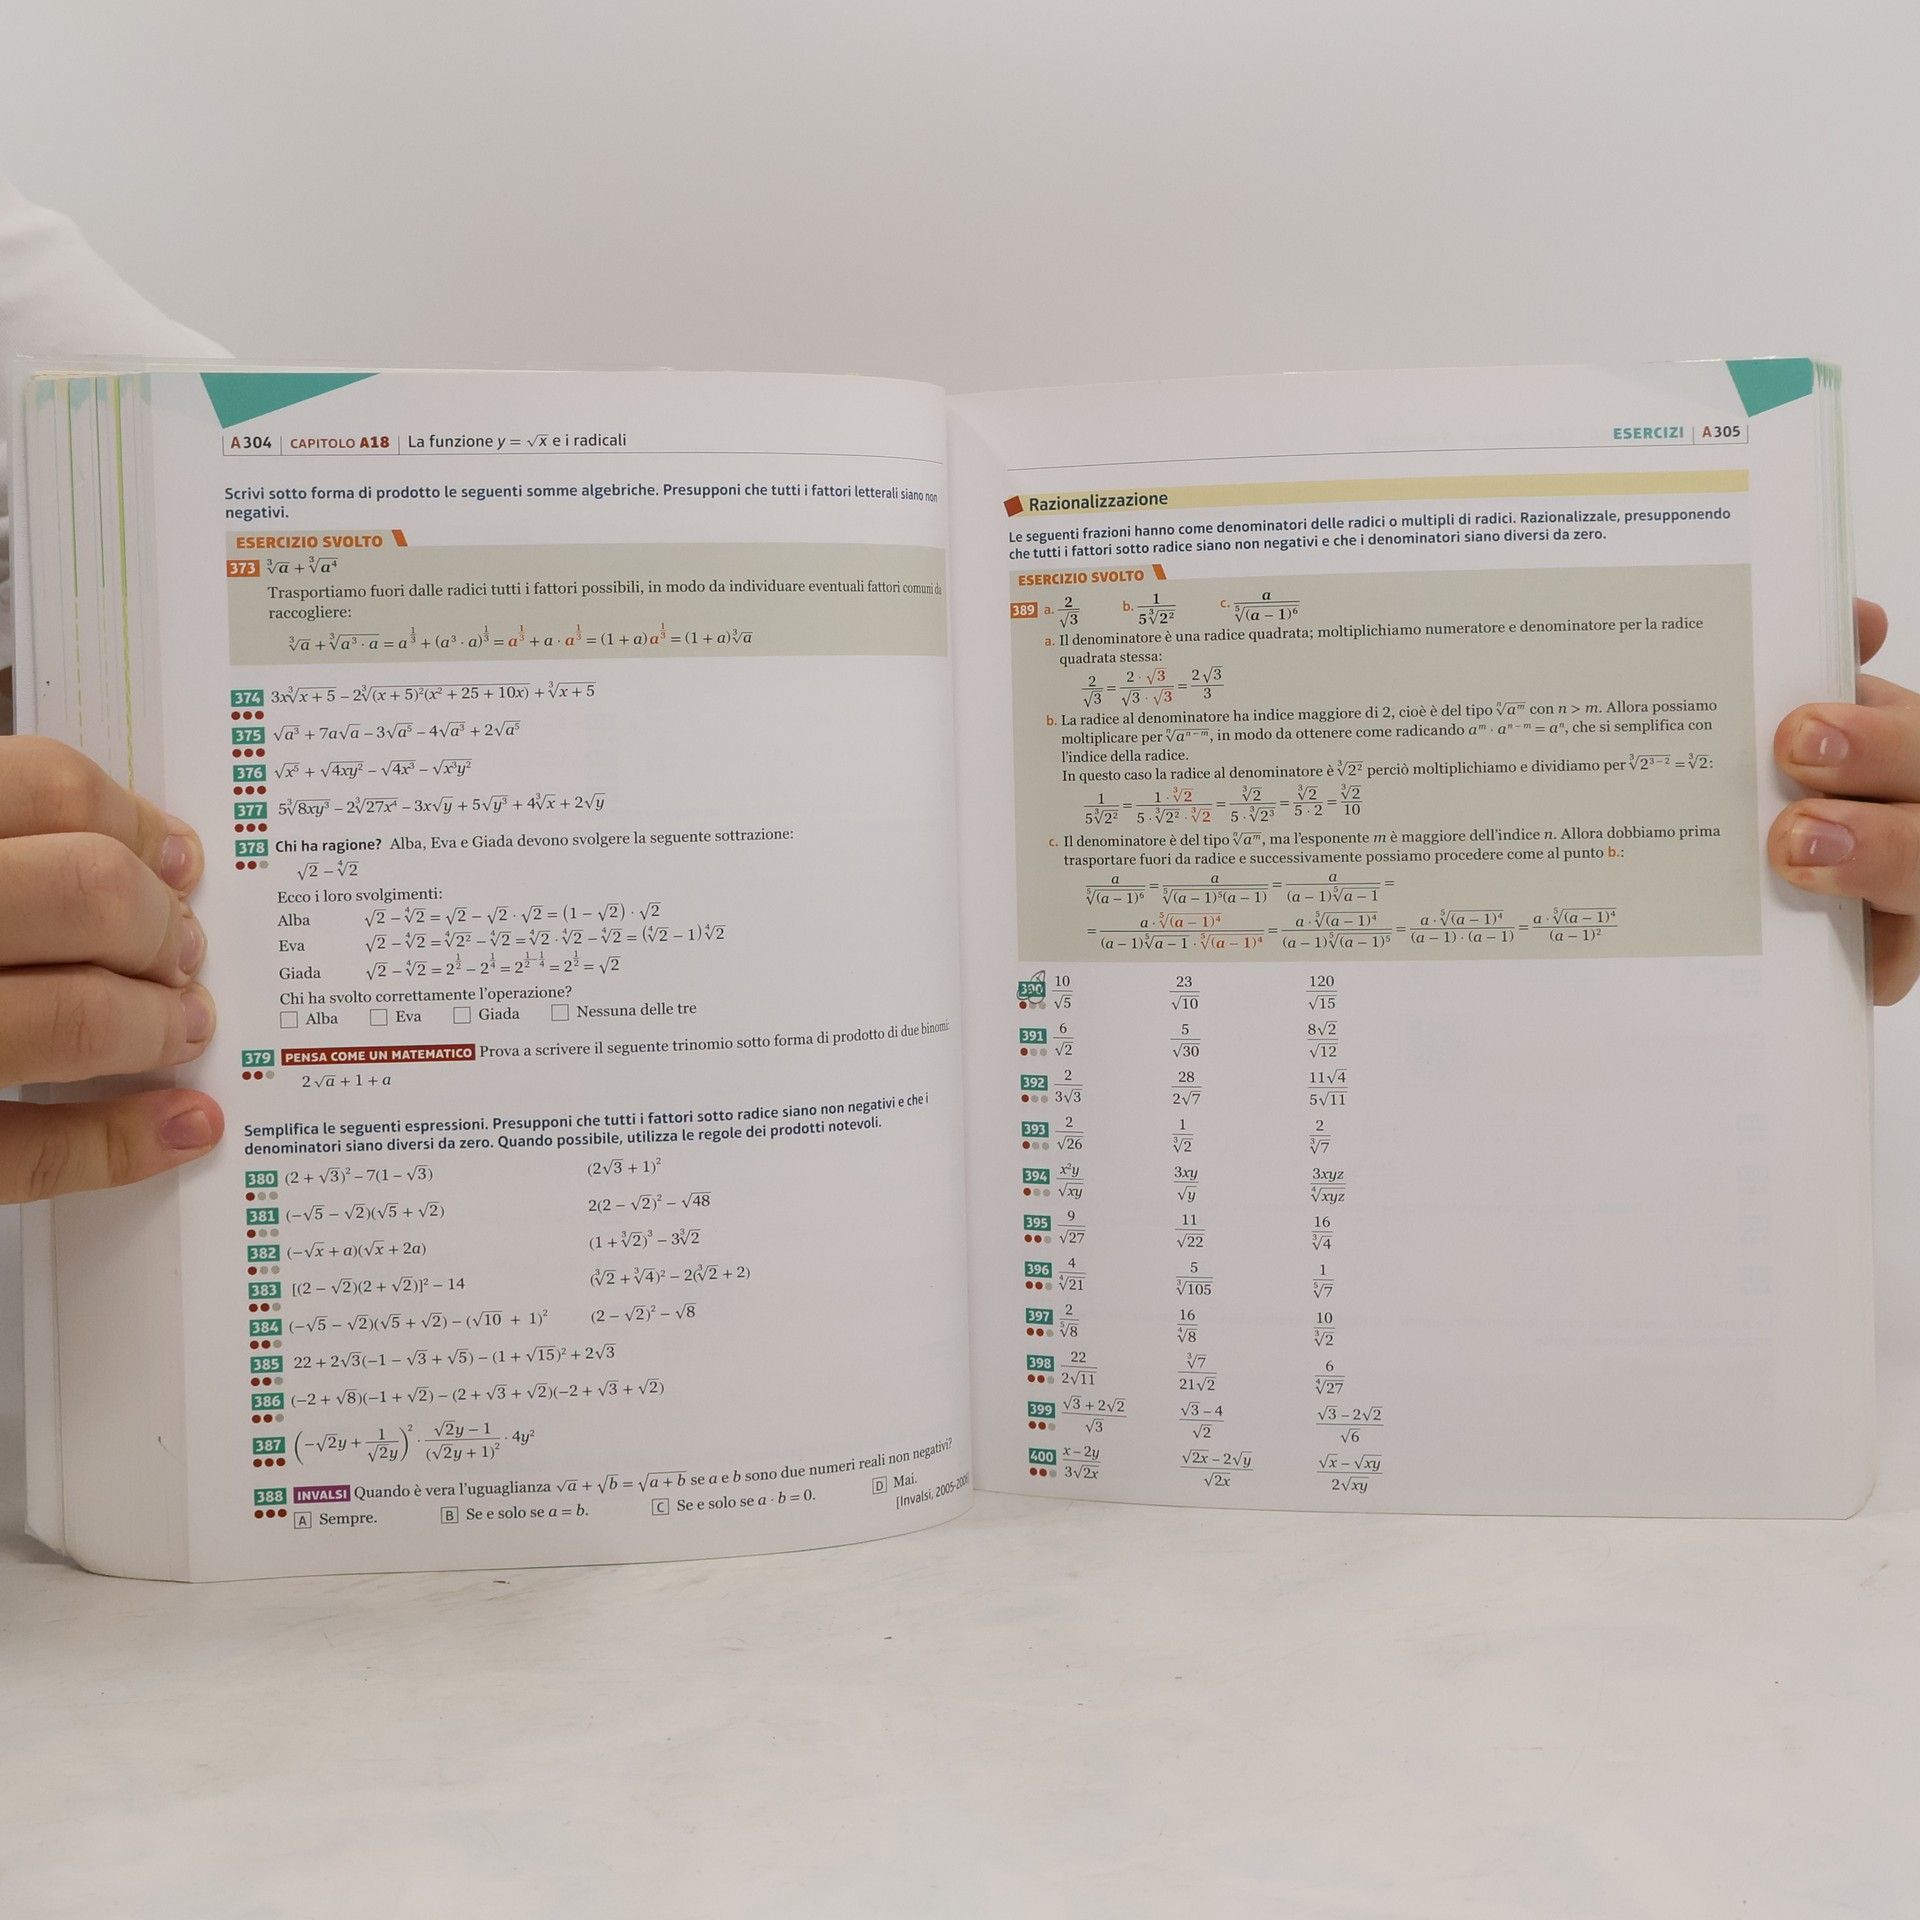 A304 | CAPITOLO A18 | La funzione y = √x e i radicali
Scrivi sotto forma di prodotto le seguenti somme algebriche. Presupponi che tutti i fattori letterali siano non
negativi.
ESERCIZIO SVOLTO
373 ∛a + ∛a⁴
Trasportiamo fuori dalle radici tutti i fattori possibili, in modo da individuare eventuali fattori comuni da
raccogliere:
∛a + ∛(a³ · a) = a^(1/3) + (a³ · a)^(1/3) = a^(1/3) + a · a^(1/3) = (1 + a) a^(1/3) = (1 + a)∛a
374 3x∛(x + 5) − 2∛((x + 5)²(x² + 25 + 10x)) + ∛(x + 5)
375 √a³ + 7a√a − 3√a⁵ − 4√a³ + 2√a⁵
376 √x⁵ + √(4xy²) − √(4x³) − √(x³y²)
377 5∛(8xy³) − 2∛(27x⁴) − 3x√y + 5√y³ + 4∛x + 2√y
378 Chi ha ragione? Alba, Eva e Giada devono svolgere la seguente sottrazione:
√2 − ∜2
Ecco i loro svolgimenti:
Alba √2 − ∜2 = √2 − √2 · √2 = (1 − √2) · √2
Eva √2 − ∜2 = ∜2² − ∜2 = ∜2 · ∜2 − ∜2 = (∜2 − 1)∜2
Giada √2 − ∜2 = 2^(1/2) − 2^(1/4) = 2^(1/2 − 1/4) = 2^(1/2) = √2
Chi ha svolto correttamente l'operazione?
Alba Eva Giada Nessuna delle tre
379 PENSA COME UN MATEMATICO Prova a scrivere il seguente trinomio sotto forma di prodotto di due binomi:
2√a + 1 + a
Semplifica le seguenti espressioni. Presupponi che tutti i fattori sotto radice siano non negativi e che i
denominatori siano diversi da zero. Quando possibile, utilizza le regole dei prodotti notevoli.
380 (2 + √3)² − 7(1 − √3) (2√3 + 1)²
381 (−√5 − √2)(√5 + √2) 2(2 − √2)² − √48
382 (−√x + a)(√x + 2a) (1 + ∛2)³ − 3∛2
383 [(2 − √2)(2 + √2)]² − 14 (∛2 + ∛4)² − 2(∛2 + 2)
384 (−√5 − √2)(√5 + √2) − (√10 + 1)² (2 − √2)² − √8
385 22 + 2√3(−1 − √3 + √5) − (1 + √15)² + 2√3
386 (−2 + √8)(−1 + √2) − (2 + √3 + √2)(−2 + √3 + √2)
387 (−√2y + 1/(√2y))² · (√2y − 1)/(√2y + 1)² · 4y²
388 INVALSI Quando è vera l'uguaglianza √a + √b = √(a + b) se a e b sono due numeri reali non negativi?
A Sempre. B Se e solo se a = b. C Se e solo se a · b = 0. D Mai.
[Invalsi, 2005-2006]
ESERCIZI | A305
Razionalizzazione
Le seguenti frazioni hanno come denominatori delle radici o multipli di radici. Razionalizzale, presupponendo
che tutti i fattori sotto radice siano non negativi e che i denominatori siano diversi da zero.
ESERCIZIO SVOLTO
389 a. 2/√3 b. 1/(5∛2²) c. a/⁵√(a − 1)⁶
a. Il denominatore è una radice quadrata; moltiplichiamo numeratore e denominatore per la radice
quadrata stessa:
2/√3 = (2 · √3)/(√3 · √3) = 2√3/3
b. La radice al denominatore ha indice maggiore di 2, cioè è del tipo ⁿ√aᵐ con n > m. Allora possiamo
moltiplicare per ⁿ√aⁿ⁻ᵐ, in modo da ottenere come radicando aᵐ · aⁿ⁻ᵐ = aⁿ, che si semplifica con
l'indice della radice.
In questo caso la radice al denominatore è ∛2² perciò moltiplichiamo e dividiamo per ∛2³⁻² = ∛2:
1/(5∛2²) = (1 · ∛2)/(5 · ∛2² · ∛2) = ∛2/(5 · ∛2³) = ∛2/(5 · 2) = ∛2/10
c. Il denominatore è del tipo ⁿ√aᵐ, ma l'esponente m è maggiore dell'indice n. Allora dobbiamo prima
trasportare fuori da radice e successivamente possiamo procedere come al punto b.:
a/⁵√(a − 1)⁶ = a/⁵√((a − 1)⁵(a − 1)) = a/((a − 1)⁵√(a − 1)) =
= (a · ⁵√(a − 1)⁴)/((a − 1)⁵√(a − 1) · ⁵√(a − 1)⁴) = (a · ⁵√(a − 1)⁴)/((a − 1)⁵√(a − 1)⁵) = (a · ⁵√(a − 1)⁴)/((a − 1) · (a − 1)) = (a · ⁵√(a − 1)⁴)/(a − 1)²
390 10/√5 23/√10 120/√15
391 6/√2 5/√30 8√2/√12
392 2/(3√3) 28/(2√7) 11√4/(5√11)
393 2/√26 1/∛2 2/∛7
394 x²y/√(xy) 3xy/√y 3xyz/∜(xyz)
395 9/√27 11/√22 16/∛4
396 4/∜21 5/∛105 1/⁵√7
397 2/⁵√8 16/∜8 10/∛2
398 22/(2√11) ∛7/(21√2) 6/∜27
399 (√3 + 2√2)/√3 (√3 − 4)/√2 (√3 − 2√2)/√6
400 (x − 2y)/(3√2x) (√2x − 2√y)/√2x (√x − √xy)/(2√xy)